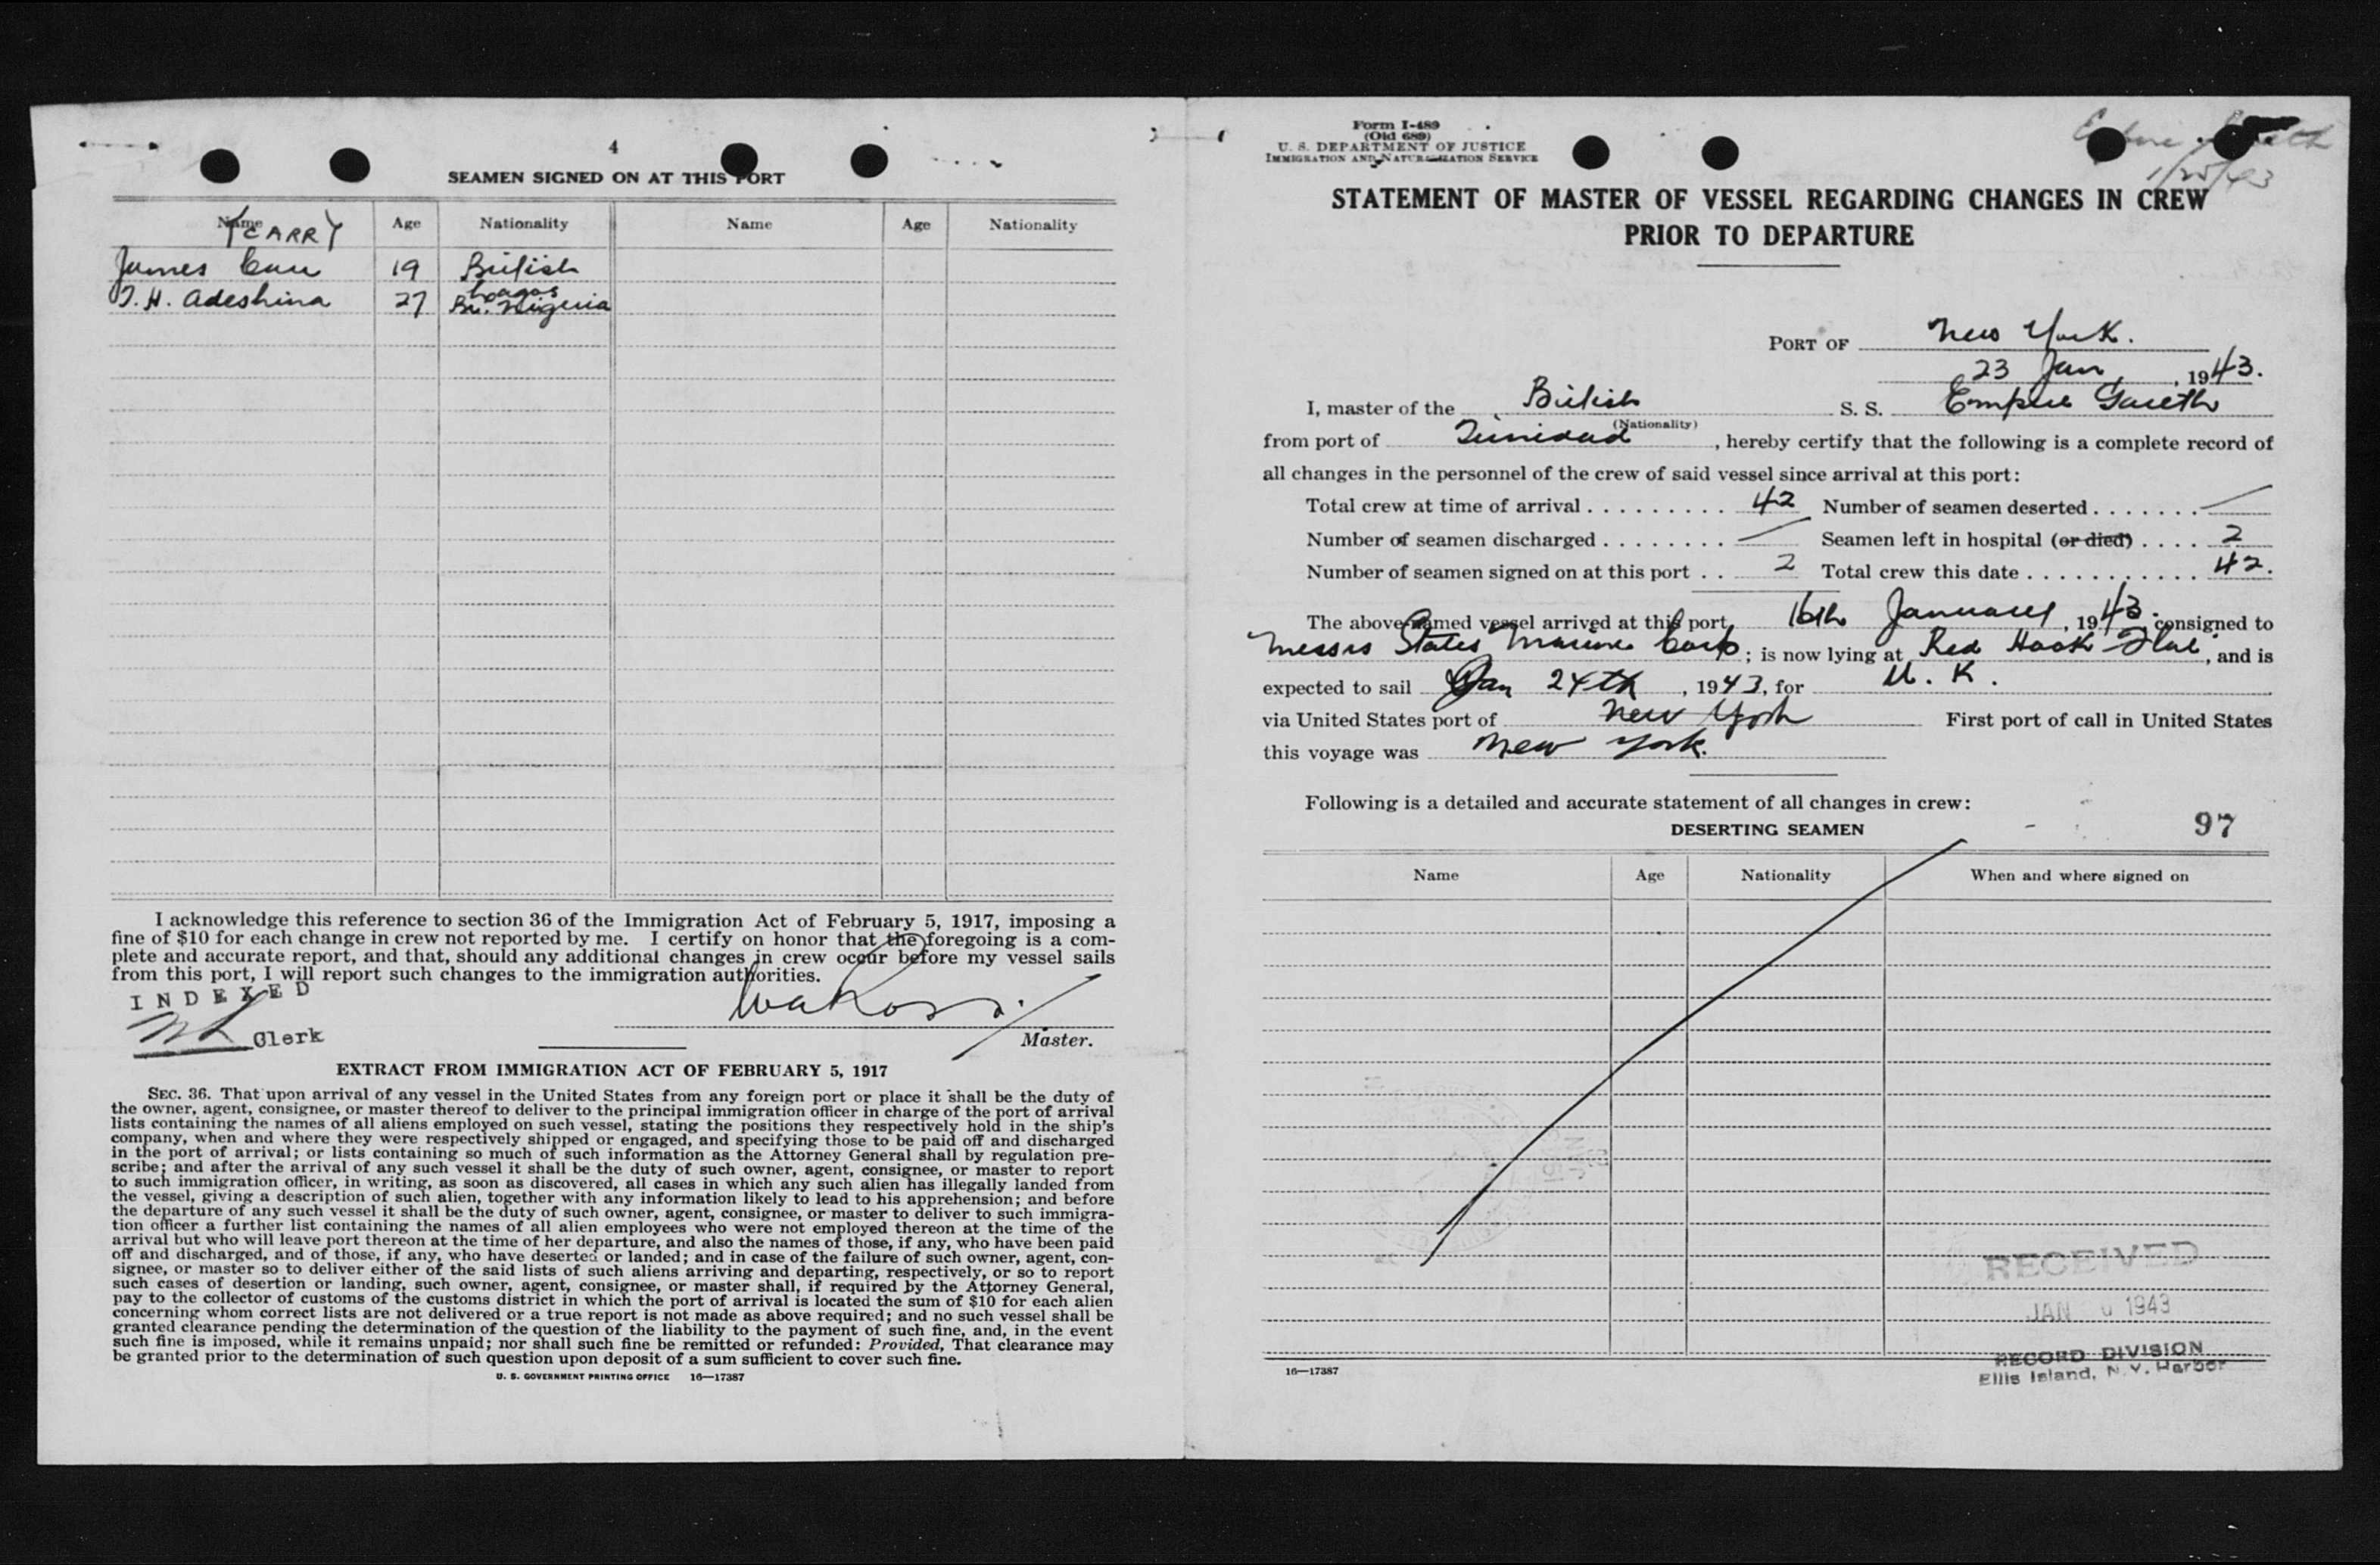 4
SEAMEN SIGNED ON AT THIS PORT
Name Age Nationality Name Age Nationality
(CARR)
James Carr 19 British
T. H. Adeshina 27 Lagos
Br. Nigeria
I acknowledge this reference to section 36 of the Immigration Act of February 5, 1917, imposing a
fine of $10 for each change in crew not reported by me. I certify on honor that the foregoing is a com-
plete and accurate report, and that, should any additional changes in crew occur before my vessel sails
from this port, I will report such changes to the immigration authorities.
INDEXED
Clerk
Master.
EXTRACT FROM IMMIGRATION ACT OF FEBRUARY 5, 1917
SEC. 36. That upon arrival of any vessel in the United States from any foreign port or place it shall be the duty of
the owner, agent, consignee, or master thereof to deliver to the principal immigration officer in charge of the port of arrival
lists containing the names of all aliens employed on such vessel, stating the positions they respectively hold in the ship's
company, when and where they were respectively shipped or engaged, and specifying those to be paid off and discharged
in the port of arrival; or lists containing so much of such information as the Attorney General shall by regulation pre-
scribe; and after the arrival of any such vessel it shall be the duty of such owner, agent, consignee, or master to report
to such immigration officer, in writing, as soon as discovered, all cases in which any such alien has illegally landed from
the vessel, giving a description of such alien, together with any information likely to lead to his apprehension; and before
the departure of any such vessel it shall be the duty of such owner, agent, consignee, or master to deliver to such immigra-
tion officer a further list containing the names of all alien employees who were not employed thereon at the time of the
arrival but who will leave port thereon at the time of her departure, and also the names of those, if any, who have been paid
off and discharged, and of those, if any, who have deserted or landed; and in case of the failure of such owner, agent, con-
signee, or master so to deliver either of the said lists of such aliens arriving and departing, respectively, or so to report
such cases of desertion or landing, such owner, agent, consignee, or master shall, if required by the Attorney General,
pay to the collector of customs of the customs district in which the port of arrival is located the sum of $10 for each alien
concerning whom correct lists are not delivered or a true report is not made as above required; and no such vessel shall be
granted clearance pending the determination of the question of the liability to the payment of such fine, and, in the event
such fine is imposed, while it remains unpaid; nor shall such fine be remitted or refunded: Provided, That clearance may
be granted prior to the determination of such question upon deposit of a sum sufficient to cover such fine.
U. S. GOVERNMENT PRINTING OFFICE 16—17387
Form I-489
(Old 689)
U. S. DEPARTMENT OF JUSTICE
IMMIGRATION AND NATURALIZATION SERVICE
1/25/43
STATEMENT OF MASTER OF VESSEL REGARDING CHANGES IN CREW
PRIOR TO DEPARTURE
PORT OF New York.
23 Jan, 1943.
I, master of the British S. S. Empire Gareth
(Nationality)
from port of Trinidad, hereby certify that the following is a complete record of
all changes in the personnel of the crew of said vessel since arrival at this port:
Total crew at time of arrival . . . . . . . . . 42 Number of seamen deserted . . . . . . . —
Number of seamen discharged . . . . . . . . — Seamen left in hospital (or died) . . . . 2
Number of seamen signed on at this port . . 2 Total crew this date . . . . . . . . . . . . 42.
The above-named vessel arrived at this port 16th January, 1943. consigned to
Messrs States Marine Corp; is now lying at Red Hook Flat, and is
expected to sail Jan 24th, 1943, for U. K.
via United States port of New York First port of call in United States
this voyage was New York.
Following is a detailed and accurate statement of all changes in crew:
DESERTING SEAMEN 97
Name Age Nationality When and where signed on
RECEIVED
JAN 1943
RECORD DIVISION
Ellis Island, N. Y. Harbor
16—17387